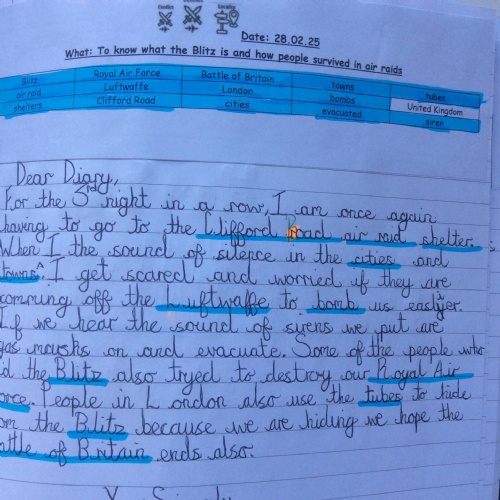 Conflict Locality
Date: 28.02.25
What: To know what the Blitz is and how people survived in air raids
Blitz Royal Air Force Battle of Britain towns tubes
air raid Luftwaffe London bombs United Kingdom
shelters Clifford Road cities evacuated siren
Dear Diary,
For the 5 night in a row, I am once again
having to go to the Clifford Road air raid shelter.
When I the sound of silence in the cities and
towns. I get scared and worried if they are
comming off the Luftwaffe to bomb us easlyer.
If we hear the sound of sirens we put are
gas masks on and evacuate. Some of the people who
d the Blitz also tryed to destroy our Royal Air
orce. People in London also use the tubes to hide
om the Blitz because we are hiding we hope the
attle of Britain ends also.